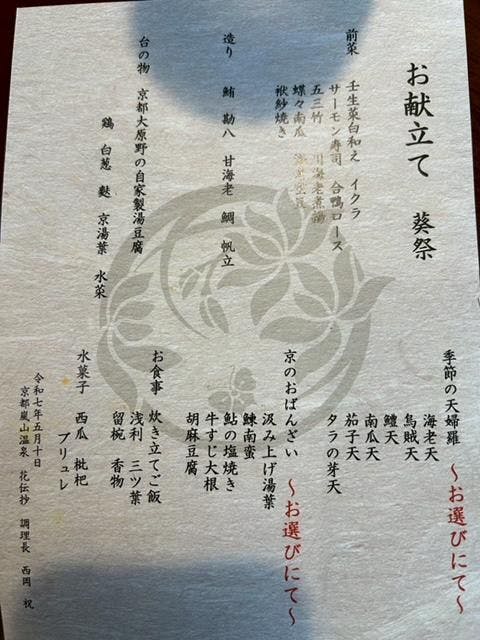 お献立て 葵祭
前菜 壬生菜白和え イクラ
サーモン寿司 合鴨ロース
五三竹 川海老煮浸
蝶々南瓜
袱紗焼き
造り 鮪 勘八 甘海老 鯛 帆立
台の物 京都大原野の自家製湯豆腐
鶏 白葱 麩 京湯葉 水菜
季節の天婦羅 ～お選びにて～
海老天
烏賊天
鱧天
南瓜天
茄子天
タラの芽天
京のおばんざい ～お選びにて～
汲み上げ湯葉
鰊南蛮
鮎の塩焼き
牛すじ大根
胡麻豆腐
お食事 炊き立てご飯
浅利 三ツ葉
留椀 香物
水菓子 西瓜 枇杷
ブリュレ
令和七年五月十日
京都嵐山温泉 花伝抄 調理長 西岡 祝